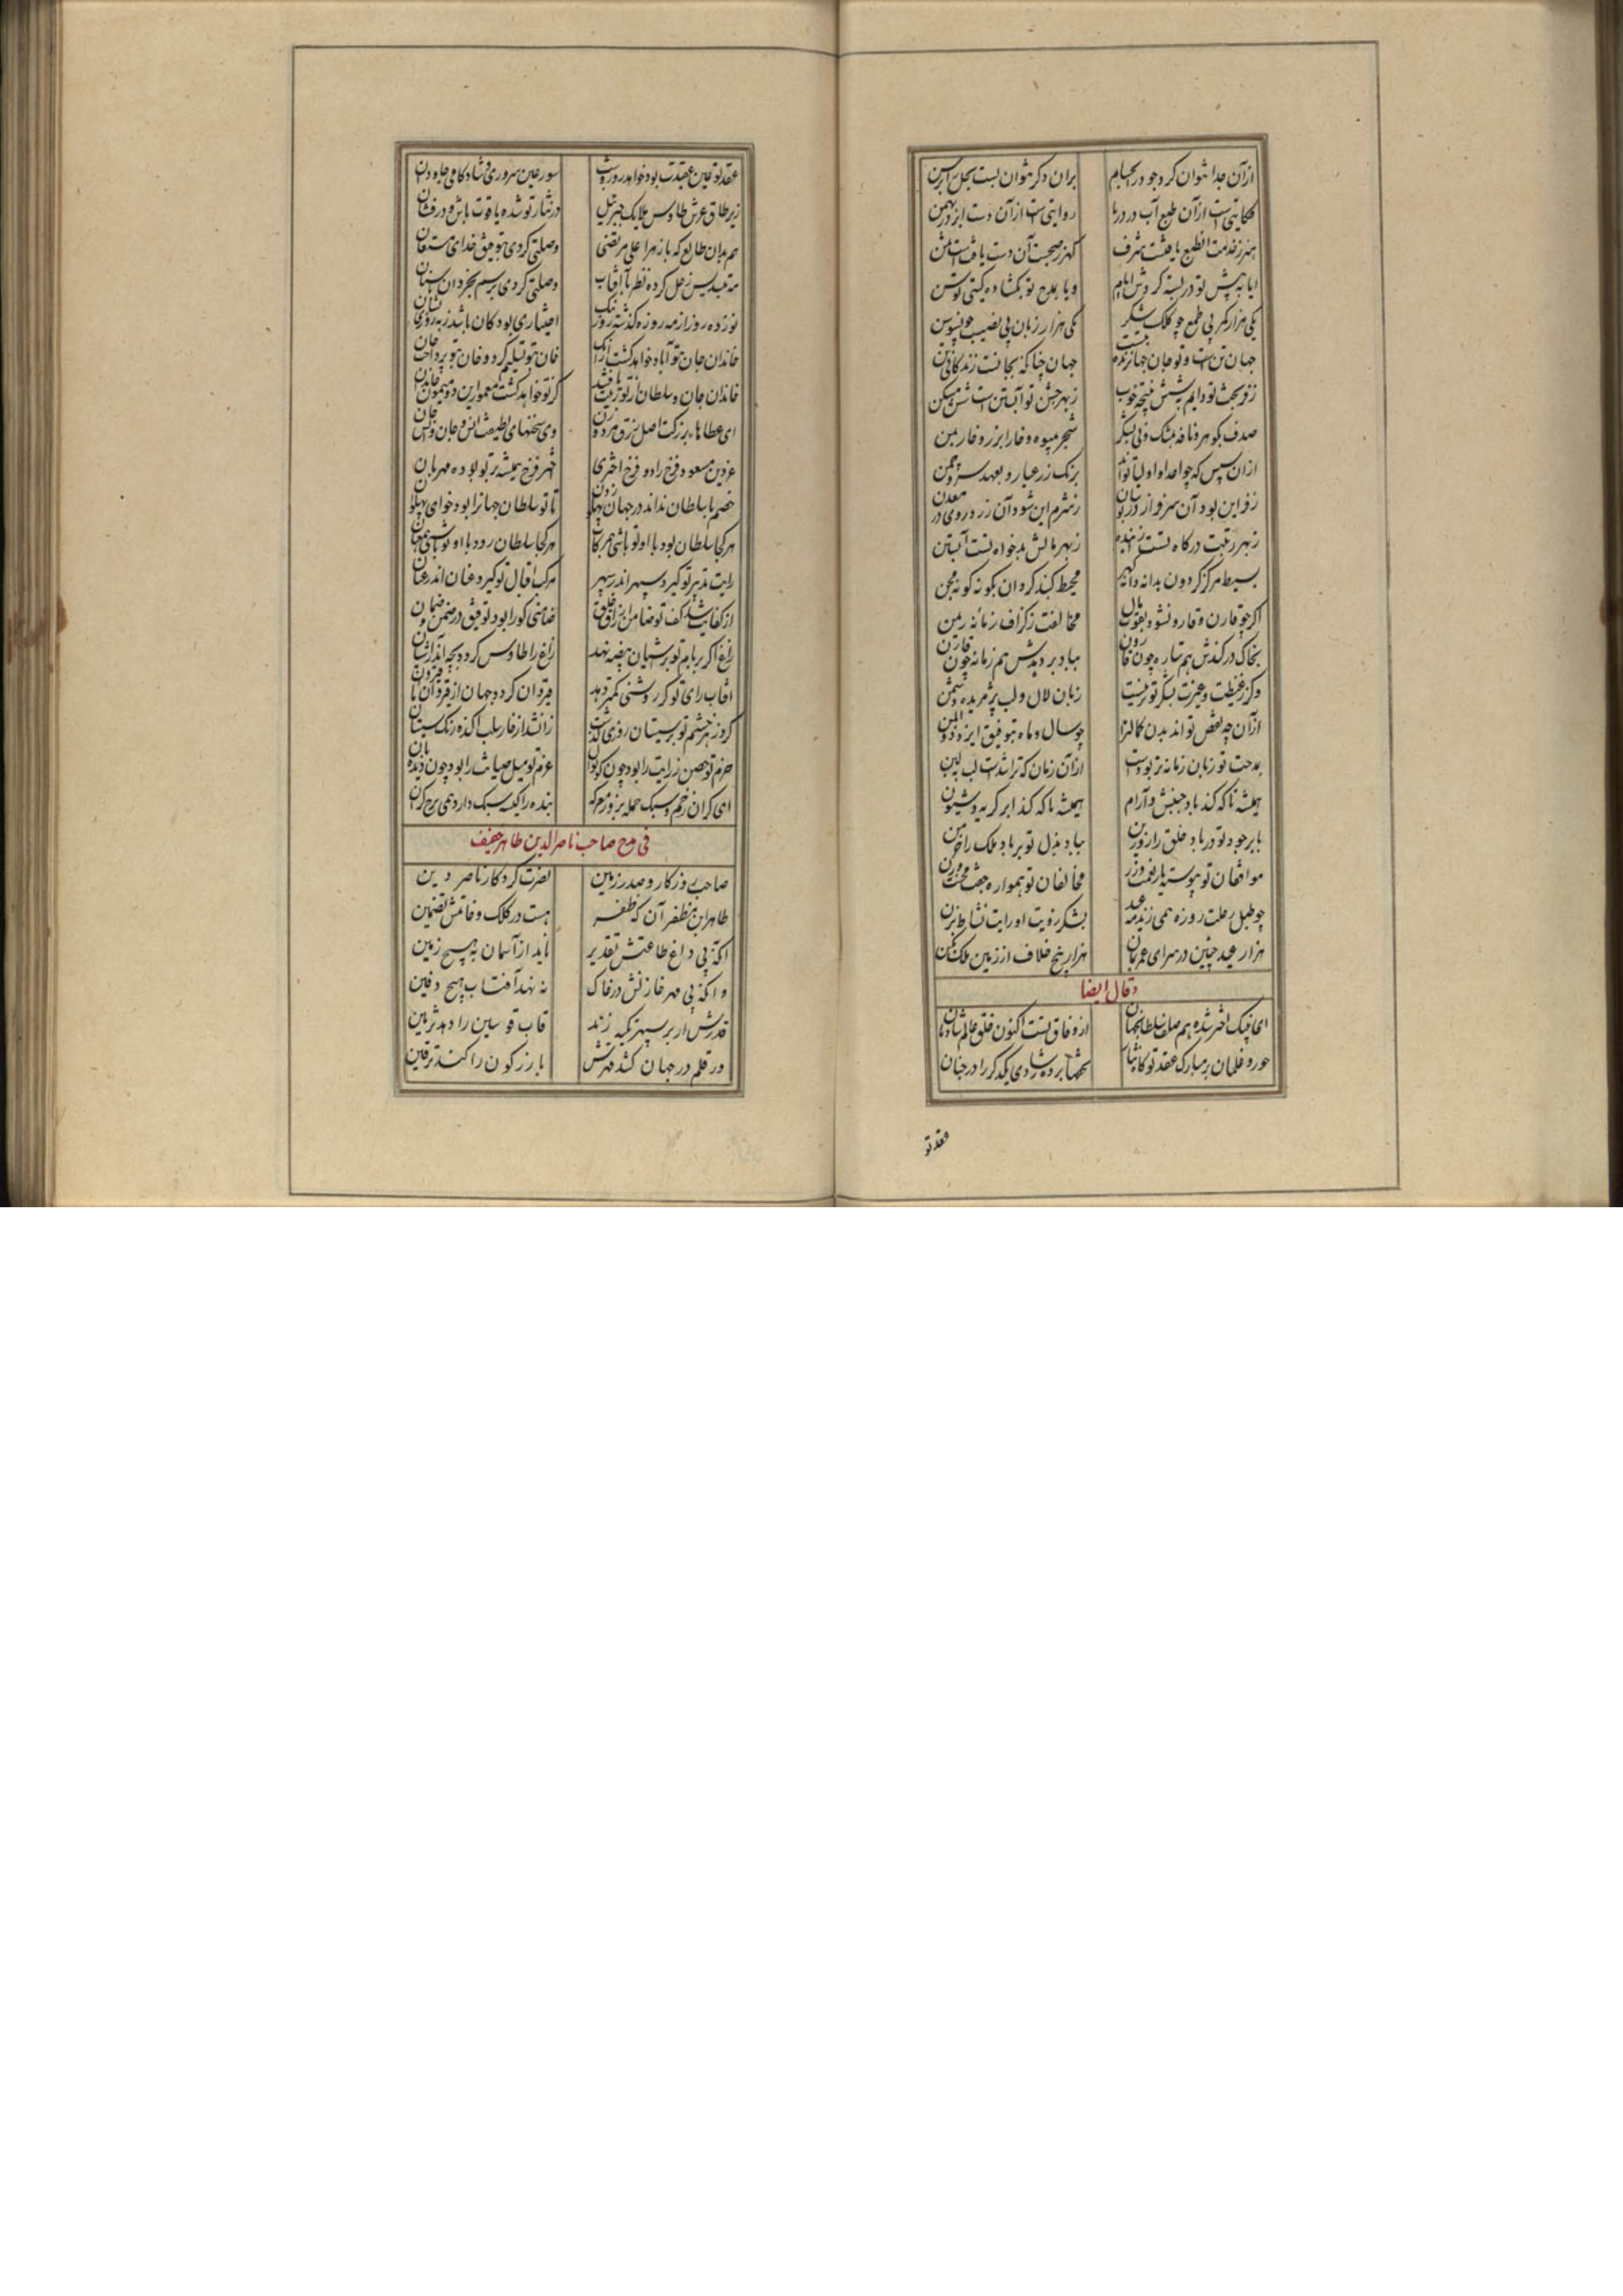 ازآن جدا نتوان کرد جود در احیام	بران دگر نتوان بست بخل برابرین
حکایتی است ازآن طبع آب در دریا	روایتی است ازآن دست ابر در بهمن
هنر ز خدمت آن طبع یافتست شرف	گهر ز صحبت آن دست یافتست ثمن
ایا به پیش تو در بسته گردش ایام	ویا بمدح تو بگشاده گیتی توسن
یکی هزار کمر بی طمع چو کلک شکر	یکی هزار زبان بی نصیب چو سوسن
جهان تن است و تو جان جهان زنده نیست	جهان چنانکه بجانست زندگانی تن
صدف بگوهر و نافه بمشک و نی بشکر	شجر بمیوه و خار ابزر و خار بمن
ازان سپس که چو اعدا و اولیا تواند	برنگ زر عیار و بعهد سرو چمن
ز فر این بود آن سرفراز در بستان	ز شرم این شود آن زرد روی در معدن
ز بهر رتبت درگاه تست زاینده	ز بهر مالش بدخواه تست آبستن
بسیط مرکز گردون بدانه دانه گهر	محیط گنبد گردان بگونه گونه محن
اگر چو قارن و قارون شود بقوت و مال	مخالفت ز گزاف زمانه ریمن
بخاک درکندش هم ستاره چون قارون	بباد بردهدش هم زمانه چون قارن
وگر ز غبطت و غیرت بشکر تو نیست	زبان لال و لب پژمریده دشمن
ازآن چه نقص تو اند بدن کمال ترا	چو سال و ماه بتوفیق ایزد ذوالمن
بمدحت تو زبان زمانه تر بودست	ازآن زمان که ترا شست لب به لبن
همیشه تا که کند باد جنبش و آرام	همیشه تا که کند ابر گریه و شیون
بابر جود تو در باد خلق را زوزین	بباد بذل تو بر باد ملک را خرمن
موافقان تو پیوسته یار نعمت و زر	مخالفان تو همواره جفت محنت و رن
چو طبل رحلت روزه همی زنند مه عید	بشکر رؤیت او رایت نشاط بزن
هزار عید چنین در سرای عمر بمان	هزار بیخ خلاف از زمین ملک بکن
وقال ایضا
ای به نیک اختر شده هم صلف سلطان جهان	از وفاق تست اکنون خلق عالم شادمان
حور و غلمان بر مبارک عقد تو کرده نثار	تحفها برده ز شادی یکدگر را در جنان
عقد تو
عقد تو عین عقیدت بود خواهد روز و شب	سور عین سروری و شادکامی جاودان
زیر طاق عرش طاوس ملایک جبرئیل	در نثار تو شده یاقوت پاش و درفشان
هم بدان طالع که با زهرا علی مرتضی	وصلتی کردی بتوفیق خدای مستعان
مه بتسدیس زحل کرده نظر با آفتاب	وصلتی کردی برسم بخردان باستان
نوزده روز از مه روزه گذشته روز نیک	اختیاری بود کان باشد ز به روزی نشان
خاندان جان تو آباد خواهد گشت ازآنک	خان بتو تسلیم کرد و خان بتو پرداخت جان
خاندان جان و سلطان از تو زینت یافتند	کز تو خواهد گشت معمور این دو میمون خاندان
ای عطاهای بزرگت اصل رزق مرد و زن	وی سخنهای لطیفت انس جان انس و جان
عز دین مسعود فرخ زاد و فرخ اختری	اختر فرخ همیشه بر تو بوده مهربان
خصم با سلطان نداند در جهان پهلو زدن	تا تو سلطان جهانرا بود خوای پهلوان
هر کجا سلطان بود با او تو باشی همرکاب	هر کجا سلطان رود با او تو باشی همعنان
رایت تدبیر تو گیرد سپهر اندر سپهر	مرکب اقبال تو گیرد عنان اندر عنان
از کفایت شد کف تو ضامن ارزاق خلق	ضامنی کورا بود توفیق در ضمن ضمان
زاغ اگر بر بام تو بر آشیان بیضه نهد	زاغ را طاوس گردد بچه اندر آشیان
آفتاب رای تو گر روشنی کمتر دهد	قیروان گردد جهان از قیروان تا قیروان
گر ز زهر خشم تو بر سیستان روزی گذشت
حزم تو حصن زرایت را بود چون کوتوال	عزم تو میل صیانت را بود چون دیده بان
ای گران زخم و سبک حمله بروز رزمگه	بنده را کیسه سبک دارد همی نرخ گران
فی مدح صاحب ناصرالدین طاهر حنیف
صاحب روزگار و صدر زمین	نصرت کردگار ناصر دین
طاهر بن مظفر آن که ظفر	هست در کلک و خاتمش تضمین
آنکه بی داغ طاعتش تقدیر	ناید از آسمان به هیچ زمین
وانکه بی مهر خازنش در خاک	ننهد آفتاب هیچ دفین
قدرش ار بر سپهر تکیه زند	قاب قوسین را دهد تزیین
ور قلم در جهان کشد قهرش	بارز کون را کند ترقین